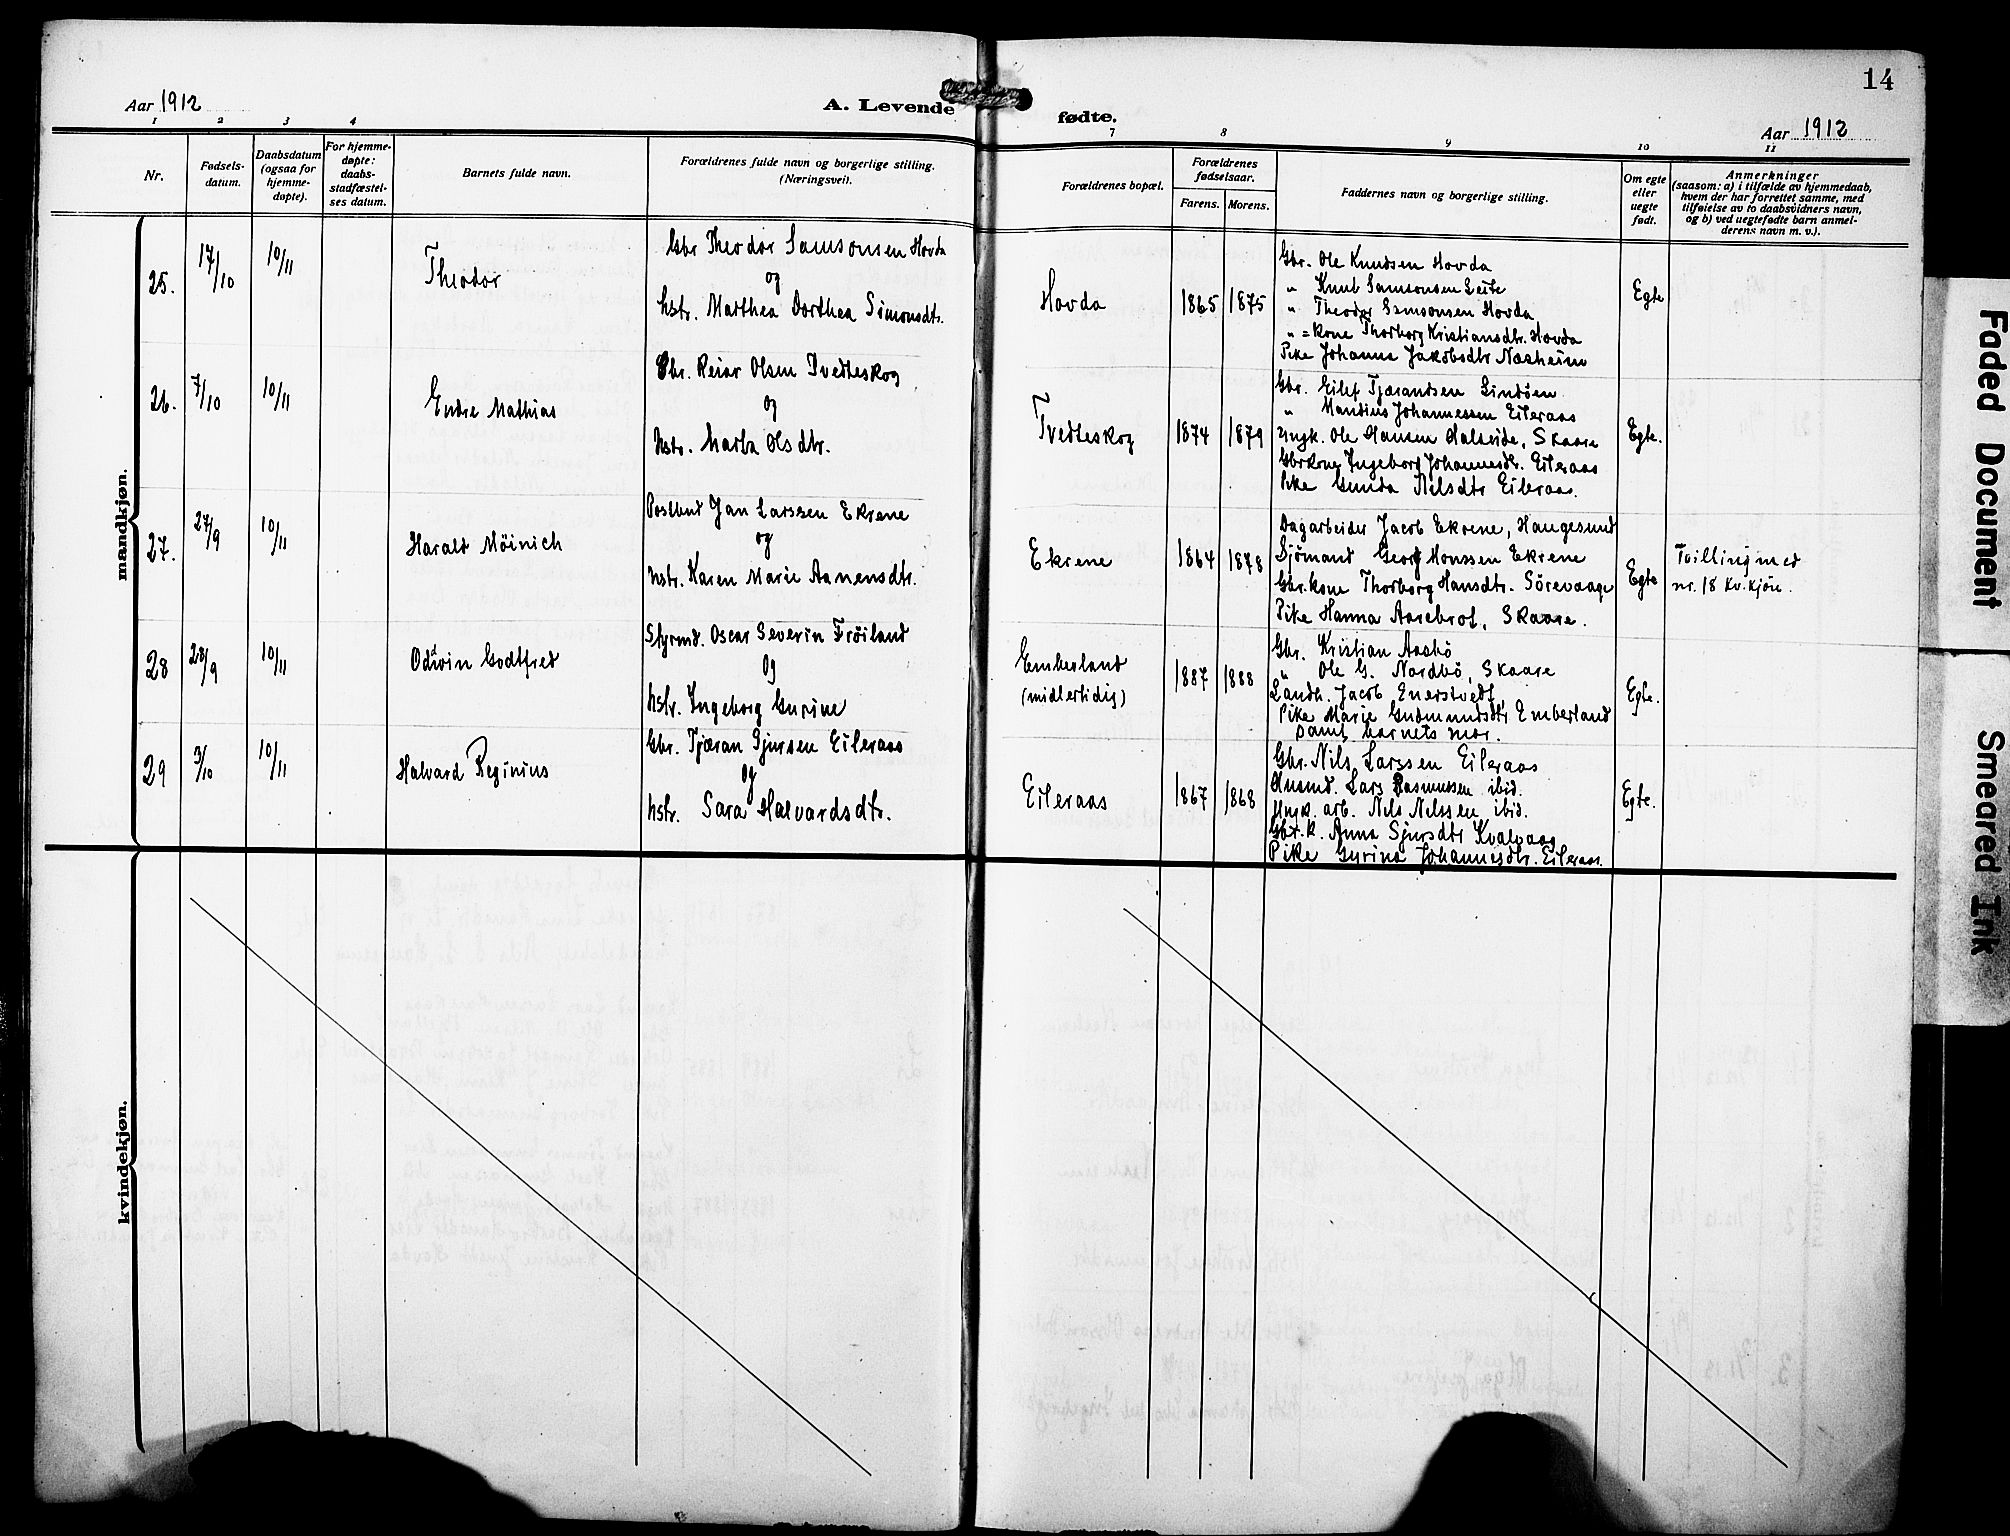 14
Aar 1912
A. Levende
fødte.
Aar 1912
1 2 3 4 7 8 9 10 11
Nr.
Fødsels-
datum.
Daabsdatum
(ogsaa for
hjemme-
døpte).
For hjemme-
døpte:
daabs-
stadfæstel-
ses datum.
Barnets fulde navn.
Forældrenes fulde navn og borgerlige stilling.
(Næringsvei).
Forældrenes bopæl.
Forældrenes
fødselsaar.
Farens. Morens.
Faddernes navn og borgerlige stilling.
Om egte
eller
uegte
født.
Anmerkninger
(saasom: a) i tilfælde av hjemmedaab,
hvem der har forrettet samme, med
tilføielse av to daabsvidners navn,
og b) ved uegtefødte barn anmel-
derens navn m. v.).
mandkjøn.
25.
17/10
10/11
Theodor
Gbr Theodor Samsonsen Hovda
og
hstr. Marthea Dorthea Simonsdtr.
Hovda
1865
1875
Gbr. Ole Knudsen Hovda
" Knut Samsonsen Leite
" Theodor Samsonsen Hovda
" =kone Thorborg Kristiansdtr. Hovda
Pike Johanna Jakobsdtr Næsheim
Egte
26.
7/10
10/11
Endre Mathias
Gbr. Reiar Olsen Tvedteskog
og
hstr. Marta Olsdtr.
Tvedteskog
1874
1879
Gbr. Eilef Tjærandsen Lindöen
" Mandius Johannessen Eileraas
Ungk. Ole Hansen Halseide, Skaare
Gbrkone Ingeborg Johannesdtr. Eileraas
Pike Gunda Nilsdtr Eileraas.
Egte.
27.
27/9
10/11
Harald Möinich
Postbud Jan Larssen Ekrene
og
hstr. Karen Marie Aanensdtr.
Ekrene
1864
1878
Dagarbeider Jacob Ekrene, Haugesund
Sjömand Georg Monssen Ekrene
Gbr.kone Thorborg Hansdtr. Sörevaage
Pike Hanna Aarebrot, Skaare.
Egte
Tvilling med
nr. 18 Kv.kjön.
28
28/9
10/11
Odvin Godtfred
Styrmd. Oscar Severin Fröiland
og
hstr. Ingeborg Gurine
Emberland
(midlertidig)
1887
1888
Gbr. Kristian Aasbö
" Ole G. Nordbö, Skaare
Landh. Jacob Enerstvedt,
Pike Marie Gudmundsdtr Emberland
samt barnets mor.
Egte.
29
3/10
10/11
Halvard Reginius
Gbr. Tjæran Sjursen Eileraas
og
hstr. Sara Halvardsdtr.
Eileraas
1867
1868
Gbr. Nils Larssen Eileraas
Husmd. Lars Rasmussen ibid.
Ungk. arb. Nils Nilssen ibid.
Gbr.k. Anna Sjursdtr Kvalvaas
Pike Gyrina Johannesdtr. Eileraas.
Egte.
kvindekjøn.
Faded Document
Smeared Ink